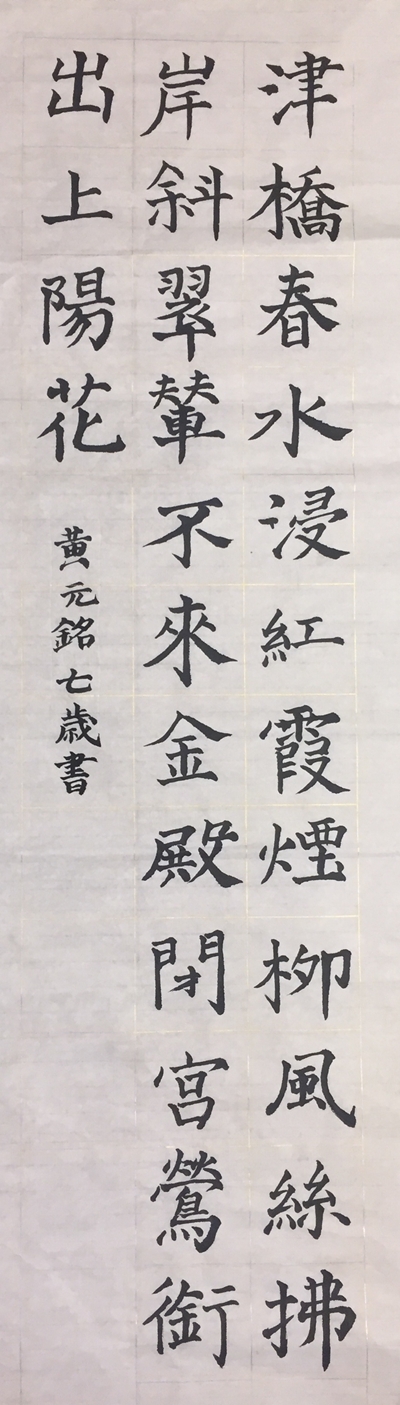 津橋春水浸紅霞煙柳風絲拂
岸斜翠輦不來金殿閉宮鶯銜
出上陽花
黃元銘七歳書